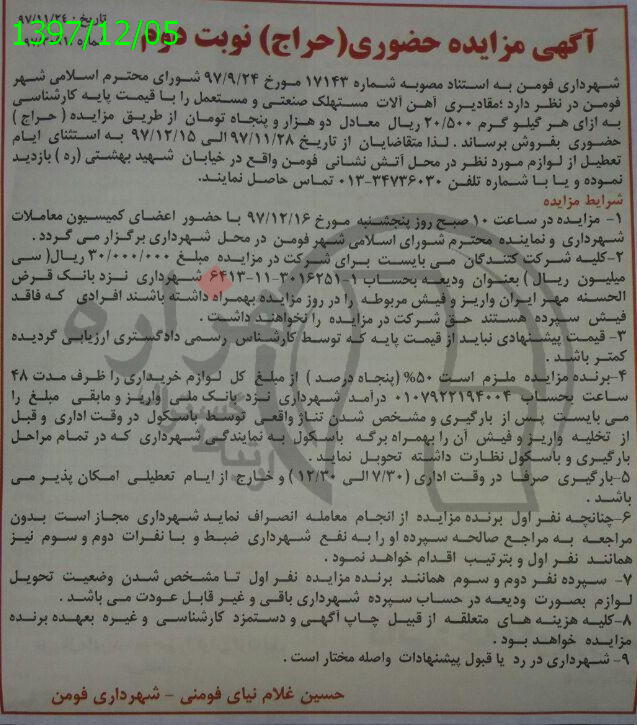 تاریخ: ۹۷/۱۱/۲۴
1397/12/05
آگهی مزایده حضوری(حراج) نوبت دوم
شهرداری فومن به استناد مصوبه شماره ۱۷۱۴۳ مورخ ۹۷/۹/۲۴ شورای محترم اسلامی شهر
فومن در نظر دارد ؛مقادیری آهن آلات مستهلک صنعتی و مستعمل را با قیمت پایه کارشناسی
به ازای هر گیلو گرم ۲۰/۵۰۰ ریال معادل دو هزار و پنجاه تومان از طریق مزایده ( حراج )
حضوری بفروش برساند . لذا متقاضایان از تاریخ ۹۷/۱۱/۲۸ الی ۹۷/۱۲/۱۵ به استثنای ایام
تعطیل از لوازم مورد نظر در محل آتش نشانی فومن واقع در خیابان شهید بهشتی (ره ) بازدید
نموده و یا با شماره تلفن ۳۴۷۳۶۰۳۰-۰۱۳ تماس حاصل نمایند.
شرایط مزایده
۱- مزایده در ساعت ۱۰ صبح روز پنجشنبه مورخ ۹۷/۱۲/۱۶ با حضور اعضای کمیسیون معاملات
شهرداری و نماینده محترم شورای اسلامی شهر فومن در محل شهرداری برگزار می گردد .
۲-کلیه شرکت کنندگان می بایست برای شرکت در مزایده مبلغ ۳۰/۰۰۰/۰۰۰ ریال( سی
میلیون ریال ) بعنوان ودیعه بحساب ۱-۳۰۱۶۲۵۱-۱۱-۶۴۱۳ شهرداری نزد بانک قرض
الحسنه مهر ایران واریز و فیش مربوطه را در روز مزایده بهمراه داشته باشند افرادی که فاقد
فیش سپرده هستند حق شرکت در مزایده را نخواهند داشت .
۳- قیمت پیشنهادی نباید از قیمت پایه که توسط کارشناس رسمی دادگستری ارزیابی گردیده
کمتر باشد .
۴-برنده مزایده ملزم است ۵۰% (پنجاه درصد ) از مبلغ کل لوازم خریداری را ظرف مدت ۴۸
ساعت بحساب ۰۱۰۷۹۲۲۱۹۴۰۰۴ درآمد شهرداری نزد بانک ملی واریز و مابقی مبلغ را
می بایست پس از بارگیری و مشخص شدن تناژ واقعی توسط باسکول در وقت اداری و قبل
از تخلیه واریز و فیش آن را بهمراه برگه باسکول به نمایندگی شهرداری که در تمام مراحل
بارگیری و باسکول نظارت داشته تحویل نماید .
۵-بارگیری صرفا در وقت اداری (۷/۳۰ الی ۱۲/۳۰ ) و خارج از ایام تعطیلی امکان پذیر می
باشد .
۶-چنانچه نفر اول برنده مزایده از انجام معامله انصراف نماید شهرداری مجاز است بدون
مراجعه به مراجع صالحه سپرده او را به نفع شهرداری ضبط و با نفرات دوم و سوم نیز
همانند نفر اول و بترتیب اقدام خواهد نمود .
۷- سپرده نفر دوم و سوم همانند برنده مزایده نفر اول تا مشخص شدن وضعیت تحویل
لوازم بصورت ودیعه در حساب سپرده شهرداری باقی و غیر قابل عودت می باشد .
۸-کلیه هزینه های متعلقه از قبیل چاپ آگهی و دستمزد کارشناسی و غیره بعهده برنده
مزایده خواهد بود .
۹- شهرداری در رد یا قبول پیشنهادات واصله مختار است .
حسین غلام نیای فومنی - شهرداری فومن